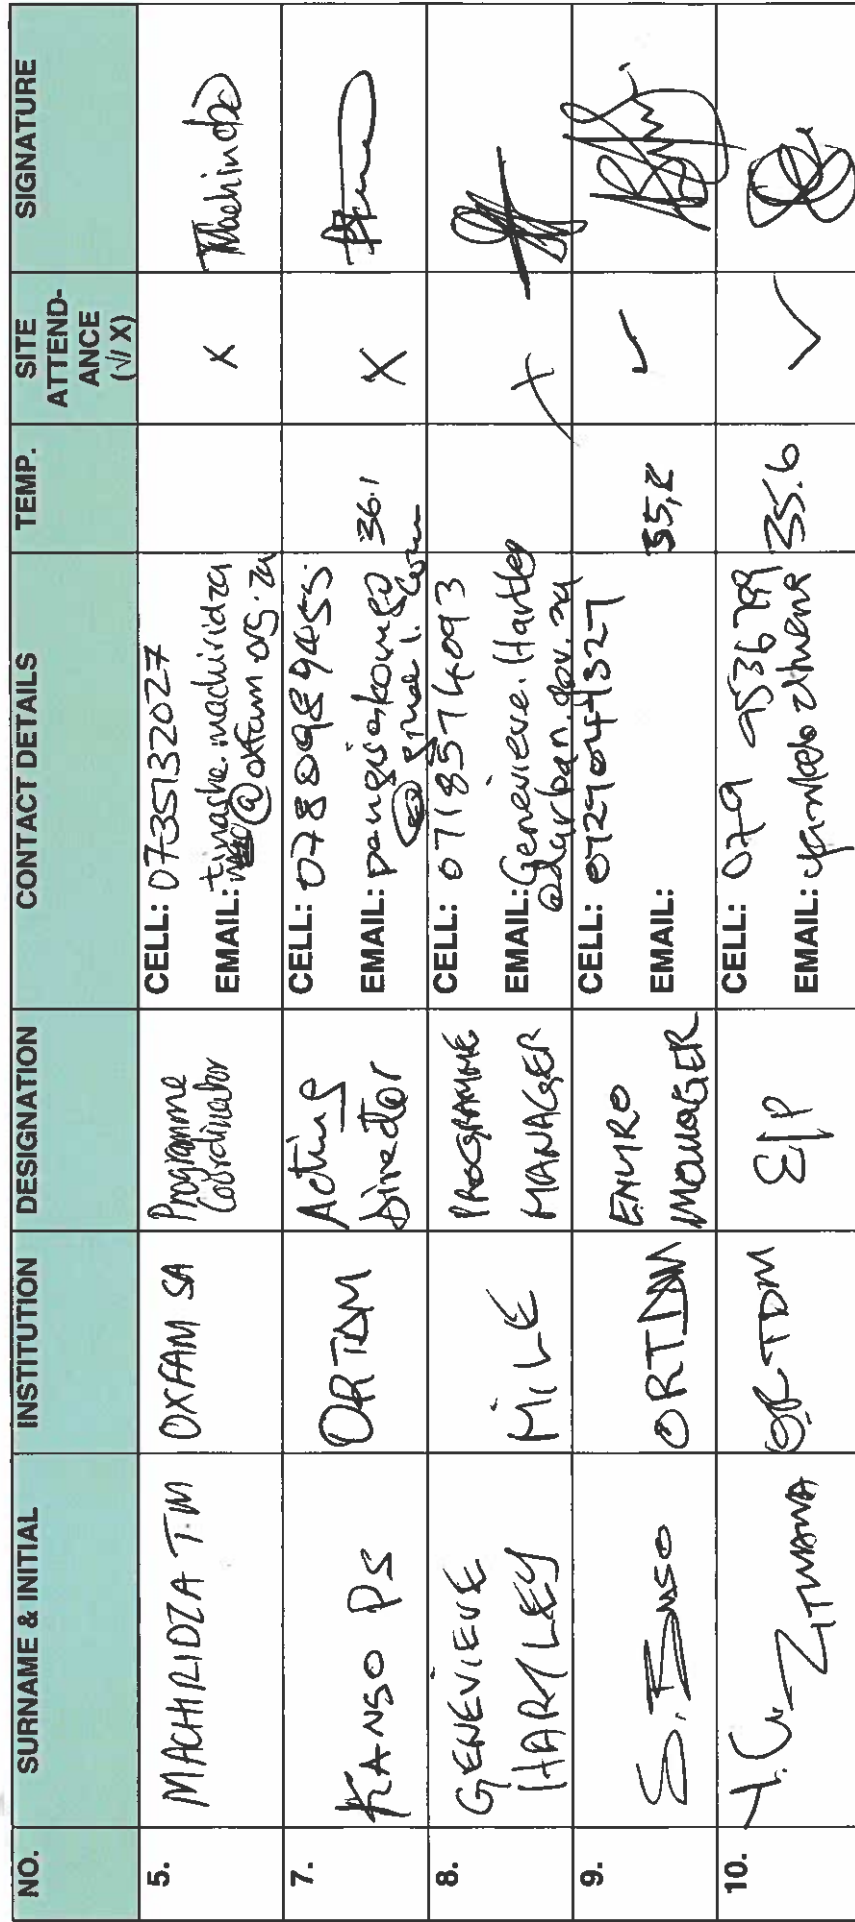 NO. SURNAME & INITIAL INSTITUTION DESIGNATION CONTACT DETAILS TEMP. SITE ATTEND-ANCE (√/ X) SIGNATURE
5. MACHIRIDZA T.M OXFAM SA Programme Coordinator CELL: 0735132027
EMAIL: tinashe.machiridza @oxfam.org.za X
7. KANSO PS ORTDM Acting Director CELL: 0780989455
EMAIL: 36.1 X
8. GENEVIEVE HARTLEY MILE PROGRAMME MANAGER CELL: 0718574093
EMAIL: Genevieve.Hartley @durban.gov.za X
9. S. ORTDM ENVIRO MANAGER CELL: 0729044327
EMAIL: 35,2 ✓
10. ZITWANA ORTDM CELL: 079 9536799
EMAIL: 35.6 ✓